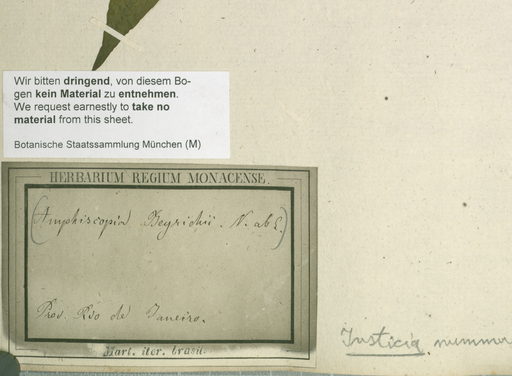 Wir bitten dringend, von diesem Bo-
gen kein Material zu entnehmen.
We request earnestly to take no
material from this sheet.
Botanische Staatssammlung München (M)
HERBARIUM REGIUM MONACENSE.
(Amphiscopia Beyrichii. N. ab E.)
Prov. Rio de Janeiro.
Mart. iter. brasil.
Justicia nummu